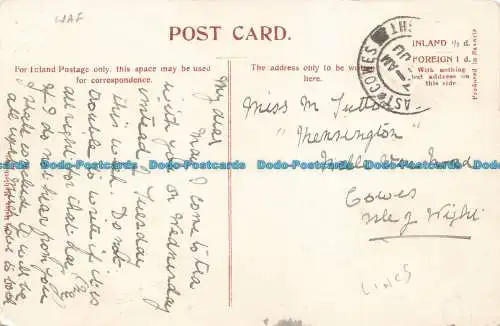 WAF
POST CARD.
For Inland Postage only, this space may be used
for correspondence.
The address only to be written
here.
INLAND ½ d.
FOREIGN 1 d.
With nothing
but address on
this side
Produced in France
AST COWES
AM
JU
My dear
May I come to tea
with you on Wednesday
instead of Tuesday
this week. Do not
trouble to write if it is
all right for that day.
If I do not hear from you
I shall conclude it will be
all right. Much love to both
Miss M. Tutton
"Kensington"
Cowes
Isle of Wight
LINCS
Dodo-Postcards Dodo-Postcards Dodo-Postcards